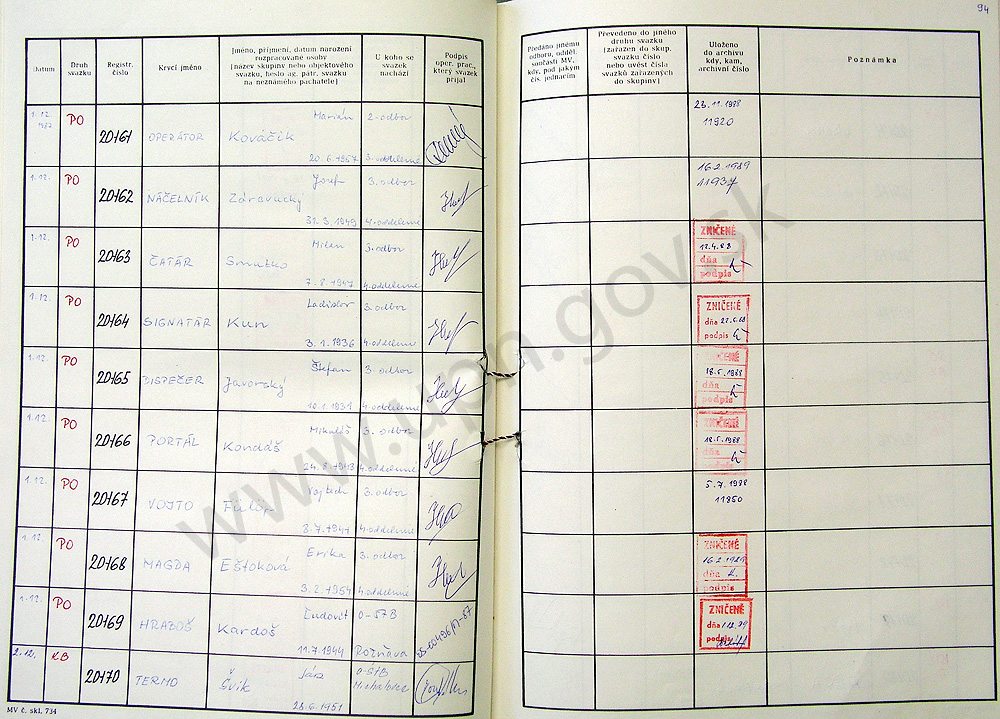 94
Datum
Druh svazku
Registr. číslo
Krycí jméno
Jméno, příjmení, datum narození
rozpracované osoby
(název skupiny nebo objektového
svazku, heslo ag. pátr. svazku
na neznámého pachatele)
U koho se
svazek
nachází
Podpis
oper. prac.,
který svazek
přijal
Předáno jinému
odboru, odděl.
součásti MV,
kdy, pod jakým
čís. jednacím
Převedeno do jiného
druhu svazku
(zařazen do skup.
svazku číslo
nebo uvést čísla
svazků zařazených
do skupiny)
Uloženo
do archivu
kdy, kam,
archivní číslo
Poznámka
1.12. 1987 PO 20161 OPERÁTOR Marián Kováčik 20.6.1957 2. odbor 3. oddelenie 23.11.1988 11920
1.12. PO 20162 NÁČELNÍK Jozef 31.3.1949 3. odbor 4. oddelenie 16.2.1989 11937
1.12. PO 20163 ČATÁR Milan 7.8.1947 3. odbor 4. oddelenie ZNIČENÉ dňa podpis
1.12. PO 20164 SIGNATÁR Ladislav Kun 3.1.1936 3. odbor 4. oddelenie ZNIČENÉ dňa podpis
1.12. PO 20165 DISPEČER Štefan Javorský 10.1.1931 3. odbor 4. oddelenie ZNIČENÉ 18.5.1988 dňa podpis
1.12. PO 20166 PORTÁL Mikuláš Kondáš 24.8.1943 3. odbor 4. oddelenie ZNIČENÉ 18.5.1988 dňa podpis
1.12. PO 20167 VOJTO Vojtech Fülöp 8.7.1947 3. odbor 4. oddelenie 5.7.1988 11850
1.12. PO 20168 MAGDA Erika Eštoková 3.2.1954 3. odbor 4. oddelenie ZNIČENÉ 16.2.1989 dňa podpis
1.12. PO 20169 HRABOŠ Ľudovít Kardoš 11.7.1944 Rožňava ZNIČENÉ dňa podpis
2.12. KB 20170 TERMO Ján Švik 23.6.1951 O-ŠtB Michalovce
MV č. skl. 734
www.upn.gov.sk